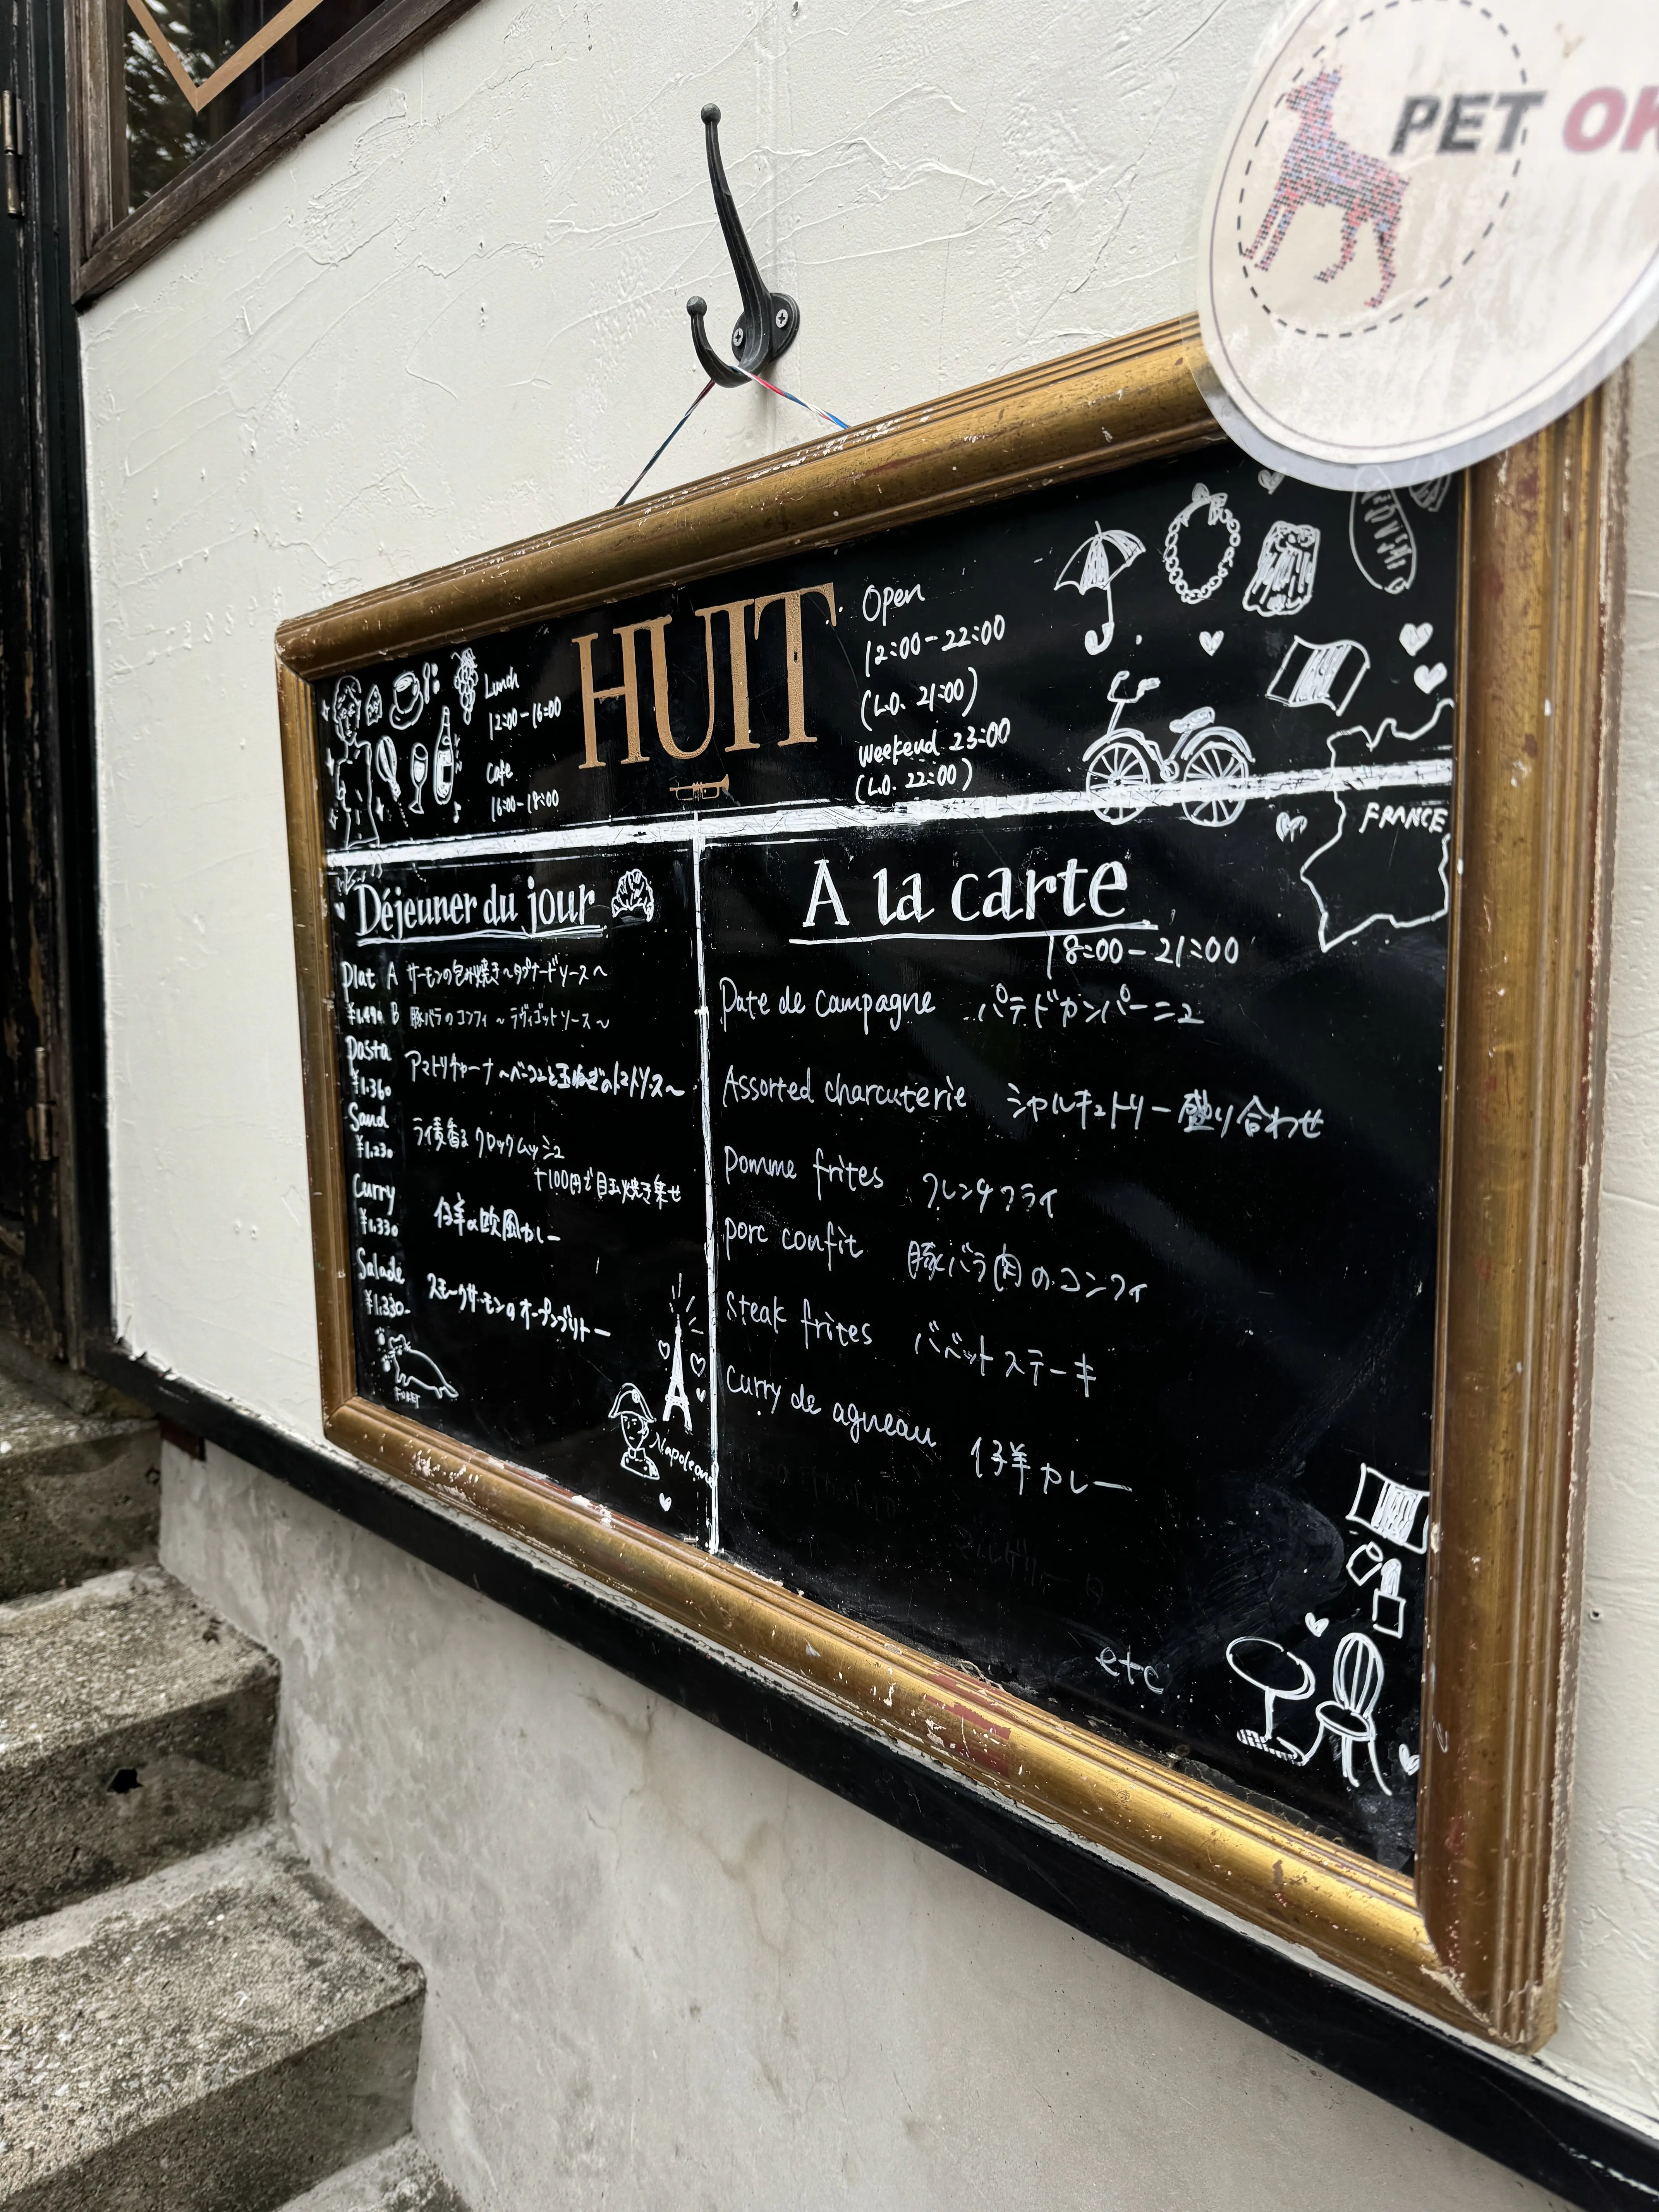 PET OK
HUIT
Lunch
12:00-16:00
Cafe
16:00-18:00
Open
12:00-22:00
(L.O. 21:00)
Weekend 23:00
(L.O. 22:00)
FRANCE
Déjeuner du jour
Plat A サーモンの包み焼き～タプナードソース～
¥1.490 B 豚バラのコンフィ～ラヴィゴットソース～
Pasta アマトリチャーナ～ベーコンと玉ねぎのトマトソース～
¥1.360
Sand ライ麦香る クロックムッシュ
¥1.230 +100円で目玉焼き乗せ
Curry 仔羊の欧風カレー
¥1.330
Salade スモークサーモンのオープンブリトー
¥1.330-
Napoleon
A la carte
18:00-21:00
Pate de campagne パテドカンパーニュ
Assorted charcuterie シャルキュトリー盛り合わせ
Pomme frites フレンチフライ
porc confit 豚バラ肉のコンフィ
Steak frites バベットステーキ
Curry de agneau 仔羊カレー
etc